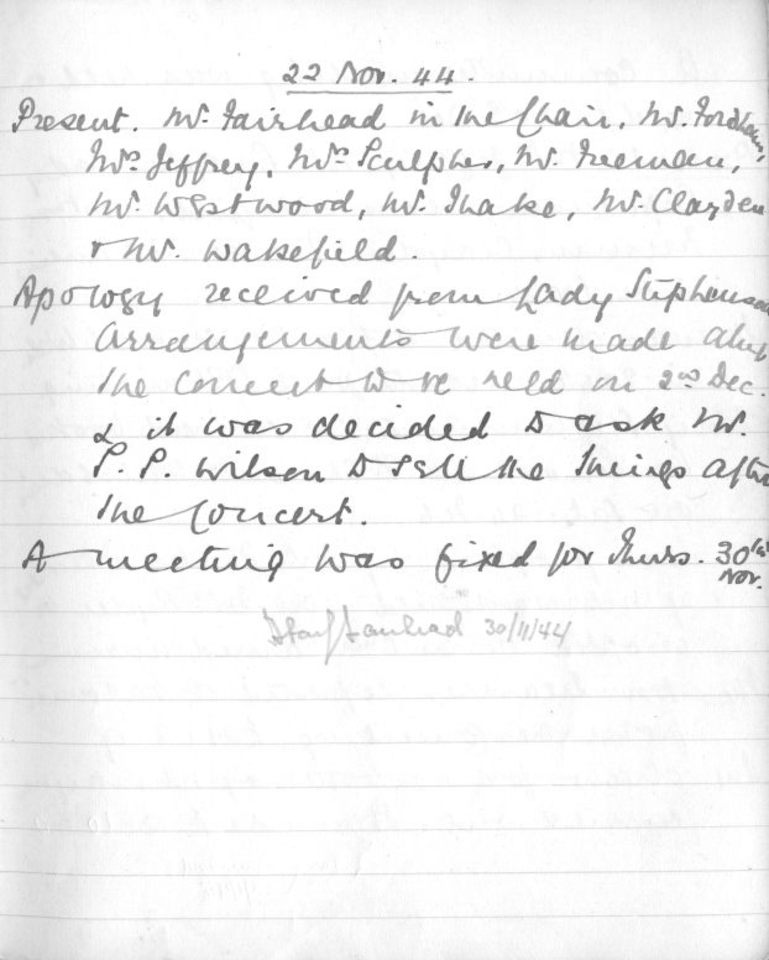 22 Nov. 44.
Present. Mr. Fairhead in the Chair, Mr. Fordham,
Mrs Jeffrey, Mrs Sculpher, Mr. Freeman,
Mr. Westwood, Mr. Thake, Mr. Clayden
& Mr. Wakefield.
Apology received from Lady Stephenson
Arrangements were made about
the Concert to be held on 2nd Dec.
& it was decided to ask Mr.
P. P. Wilson to sell the things after
the Concert.
A meeting was fixed for Thurs. 30th
Nov.
Fairhead 30/11/44